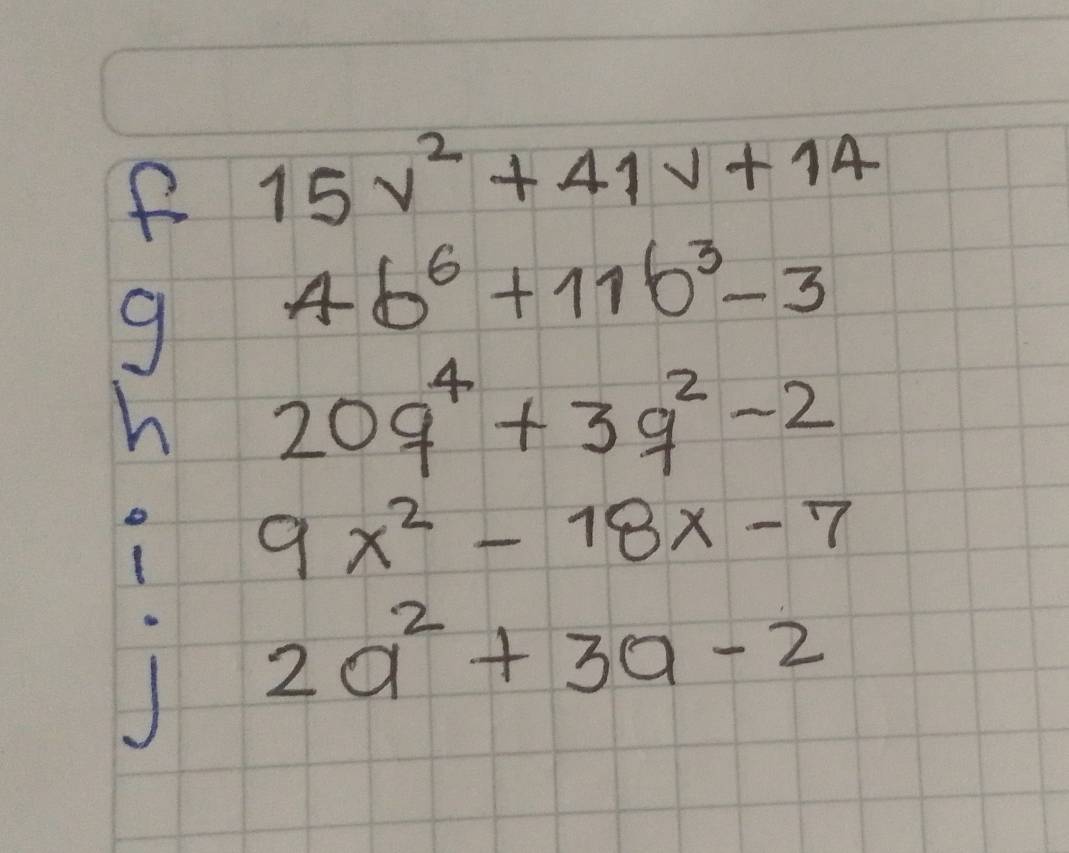 f 15v² + 41v + 14
g 4b⁶ + 11b³ - 3
h 20q⁴ + 3q² - 2
i 9x² - 18x - 7
j 2a² + 3a - 2